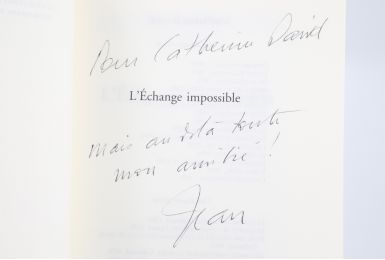 Pour Catherine David
L'Échange impossible
mais au delà toute
mon amitié !
Jean